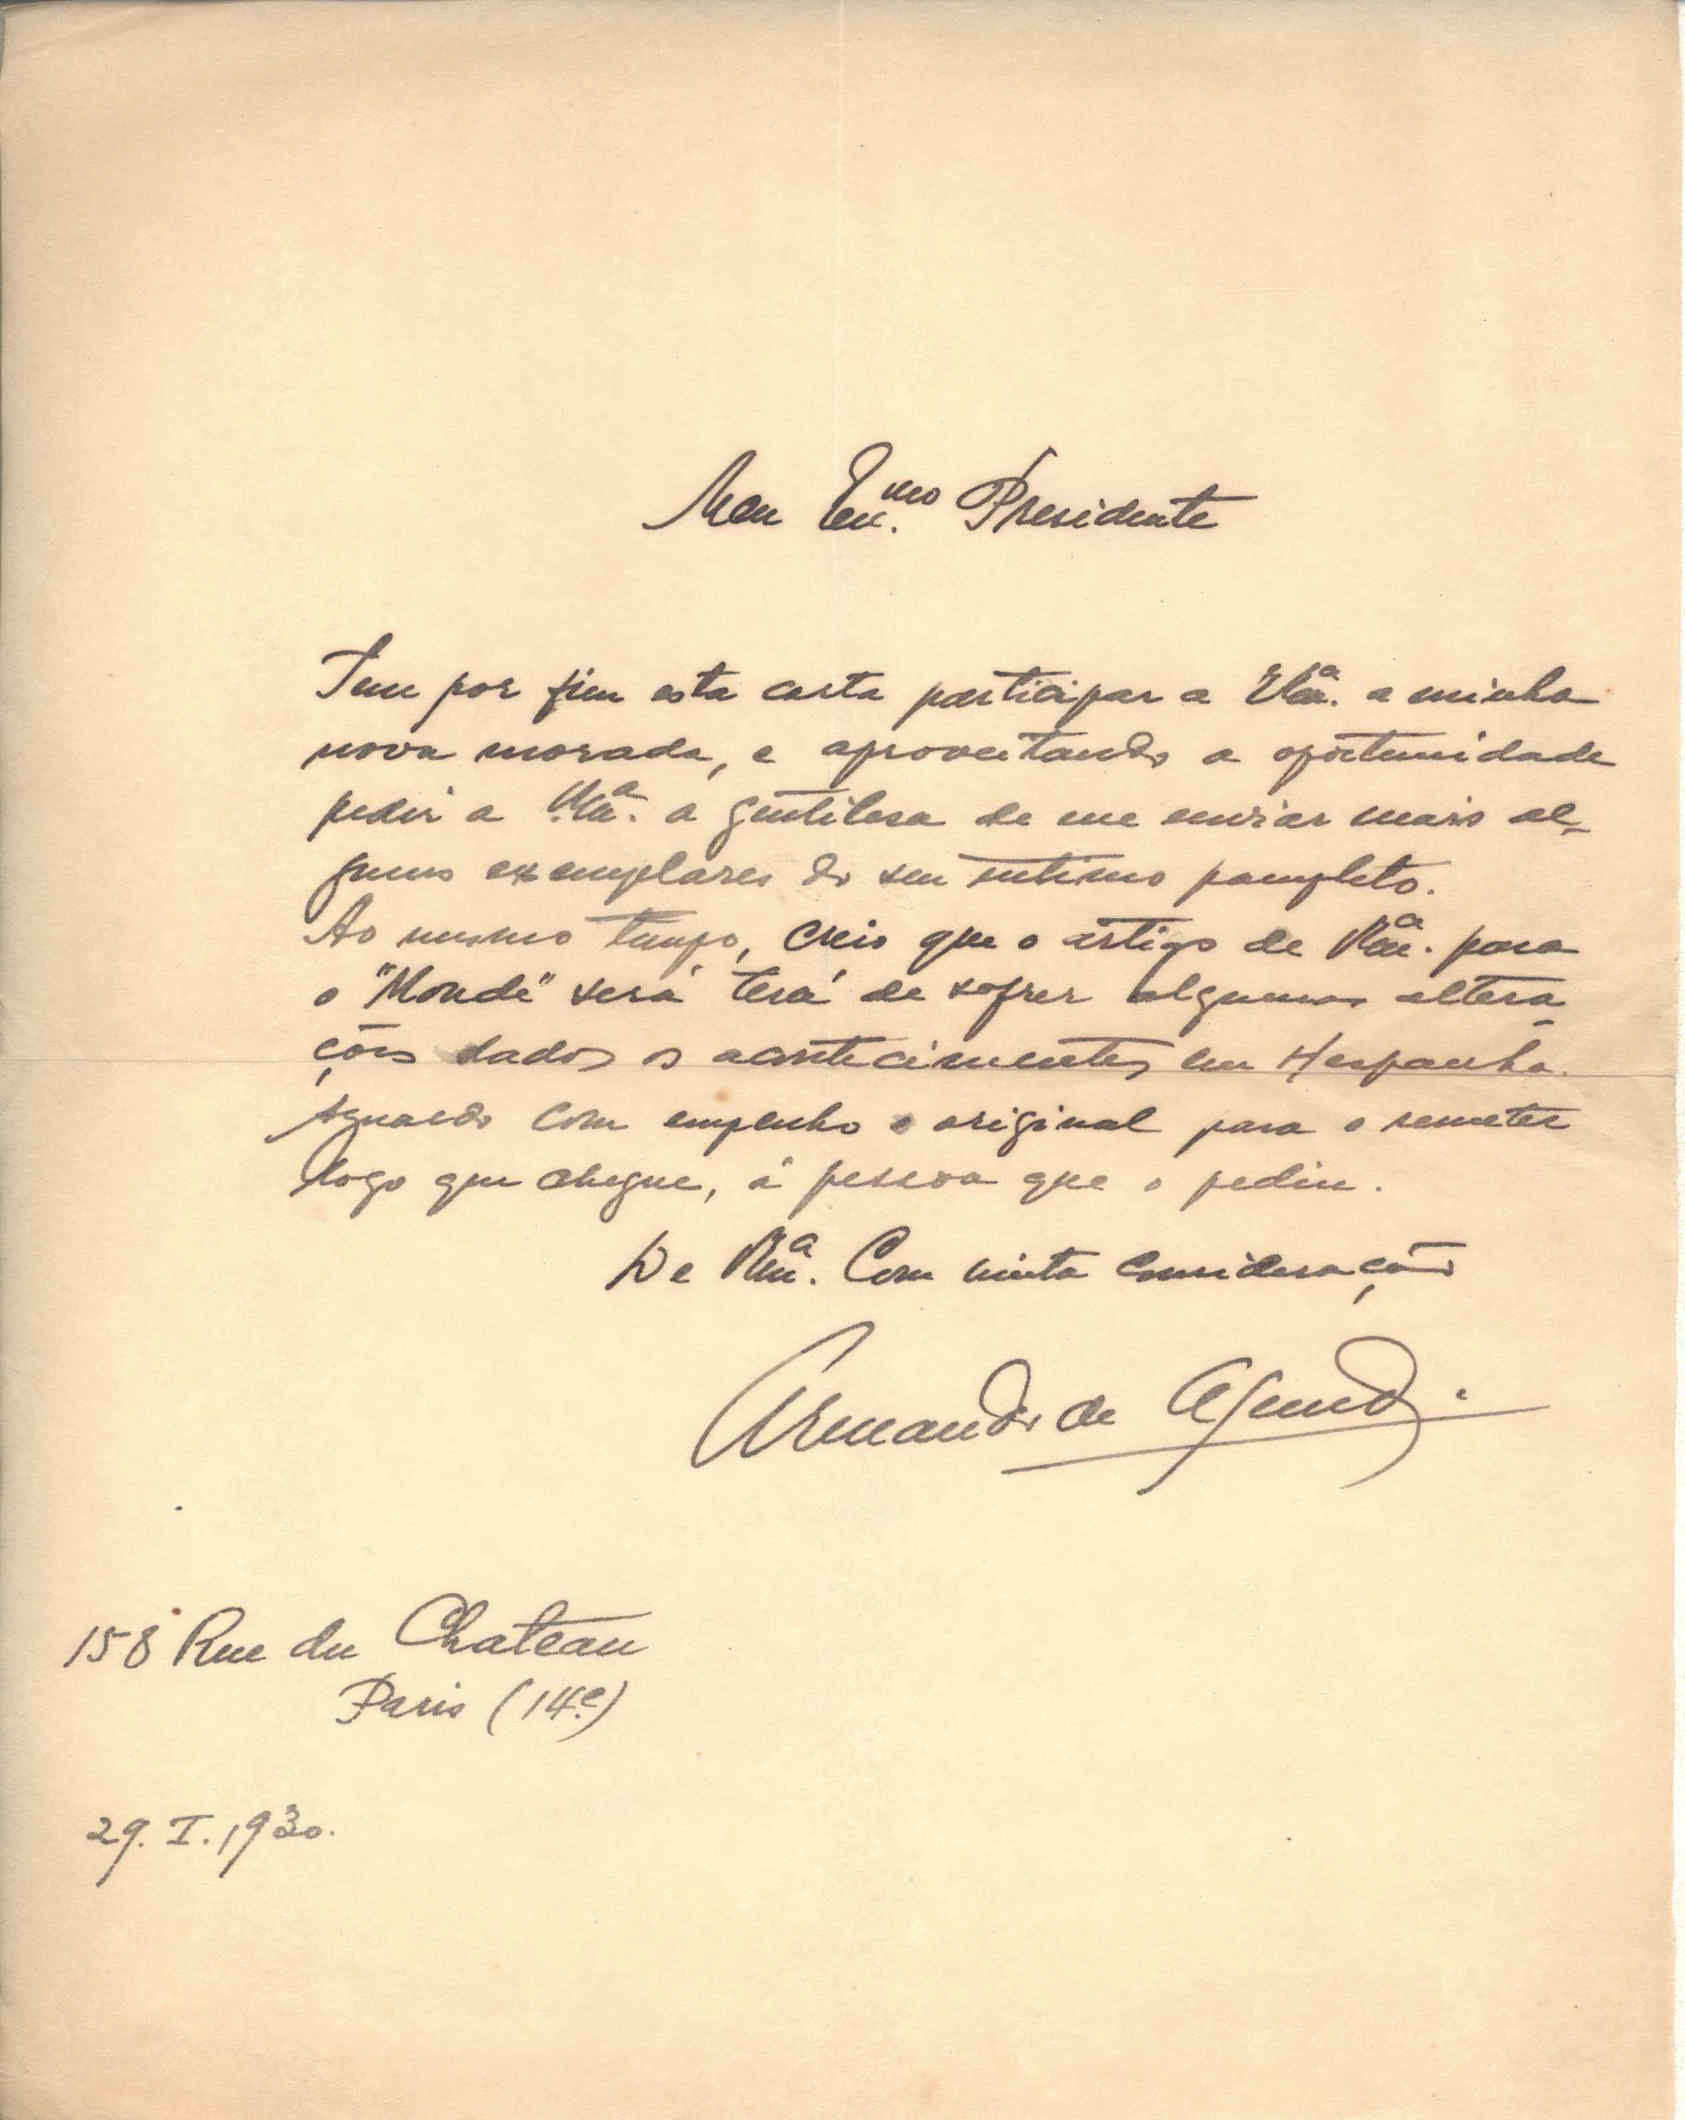 Meu Exc.mo Presidente
Tem por fim esta carta participar a V. Ex.ª a minha
nova morada, e aproveitando a oportunidade
pedir a V. Ex.ª a gentilesa de me enviar mais al-
guns exemplares do seu ultimo pamfleto.
Ao mesmo tempo, creio que o artigo de V. Ex.ª para
o "Monde" será terá de sofrer algumas altera
ções dados os acontecimentos em Hespanha.
Aguardo com empenho o original para o remeter
logo que chegue, á pessoa que o pediu.
De V. Ex.ª Com muita consideração
Armando de
158 Rue du Chateau
Paris (14.e)
29. I. 1930.